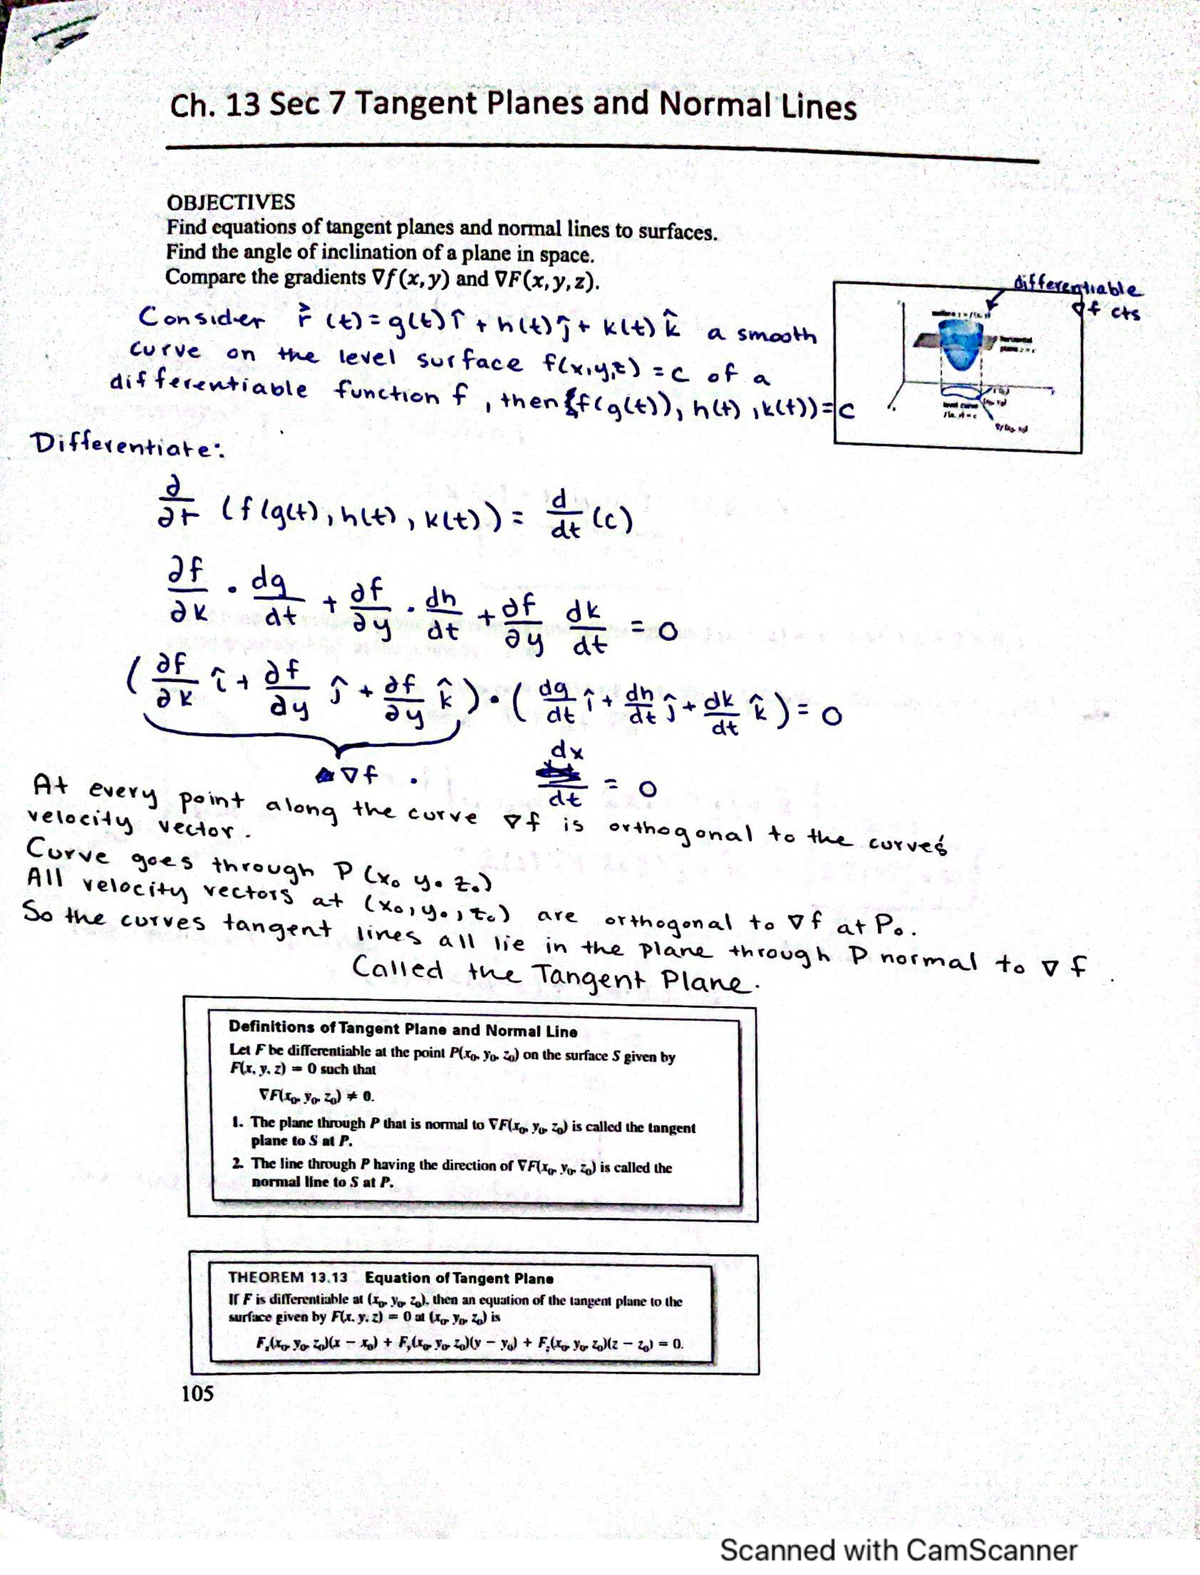 Ch. 13 Sec 7 Tangent Planes and Normal Lines
OBJECTIVES
Find equations of tangent planes and normal lines to surfaces.
Find the angle of inclination of a plane in space.
Compare the gradients ∇f(x, y) and ∇F(x, y, z).
differentiable
f cts
Consider r⃗(t) = g(t)î + h(t)ĵ + k(t)k̂ a smooth
curve on the level surface f(x,y,z) = c of a
differentiable function f, then f(g(t)), h(t), k(t)) = c
surface z = f(x, y)
horizontal
plane z = c
level curve
f(x, y) = c
Differentiate:
∂/∂t (f(g(t), h(t), k(t)) = d/dt (c)
∂f/∂k · dg/dt + ∂f/∂y · dh/dt + ∂f/∂y dk/dt = 0
(∂f/∂k î + ∂f/∂y ĵ + ∂f/∂y k̂) · (dg/dt î + dh/dt ĵ + dk/dt k̂) = 0
∇f · dx/dt = 0
At every point along the curve ∇f is orthogonal to the curve's
velocity vector.
Curve goes through P(x₀ y₀ z₀)
All velocity vectors at (x₀, y₀, z₀) are orthogonal to ∇f at P₀.
So the curves tangent lines all lie in the plane through P normal to ∇f
Called the Tangent Plane.
Definitions of Tangent Plane and Normal Line
Let F be differentiable at the point P(x₀, y₀, z₀) on the surface S given by
F(x, y, z) = 0 such that
∇F(x₀, y₀, z₀) ≠ 0.
1. The plane through P that is normal to ∇F(x₀, y₀, z₀) is called the tangent
plane to S at P.
2. The line through P having the direction of ∇F(x₀, y₀, z₀) is called the
normal line to S at P.
THEOREM 13.13 Equation of Tangent Plane
If F is differentiable at (x₀, y₀, z₀), then an equation of the tangent plane to the
surface given by F(x, y, z) = 0 at (x₀, y₀, z₀) is
Fₓ(x₀, y₀, z₀)(x − x₀) + F_y(x₀, y₀, z₀)(y − y₀) + F_z(x₀, y₀, z₀)(z − z₀) = 0.
105
Scanned with CamScanner